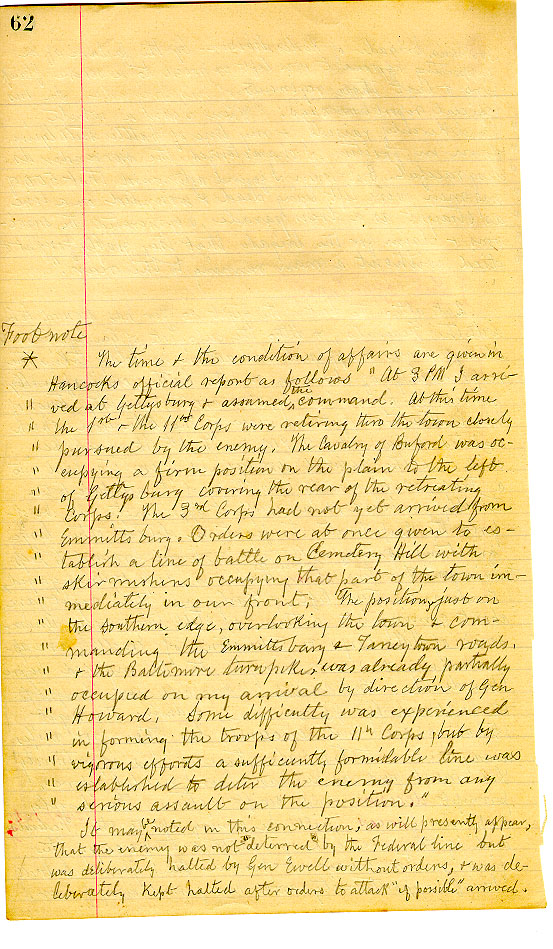 62
Footnote
* The time & the condition of affairs are given in
Hancocks official report as follows "At 3 PM I arri-
" ved at Gettysburg & assumed the command. At this time
" the 1st & the 11th Corps were retiring thro the town closely
" pursued by the enemy. The Cavalry of Buford was oc-
" cupying a firm position on the plain to the left
" of Gettysburg covering the rear of the retreating
" Corps. The 3rd Corps had not yet arrived from
" Emmittsburg. Orders were at once given to es-
" tablish a line of battle on Cemetery Hill with
" skirmishers occupying that part of the town im-
" mediately in our front; The position, just on
" the Southern edge, overlooking the town & com-
" manding the Emmittsburg & Taneytown roads,
" & the Baltimore turnpike, was already partially
" occupied on my arrival by direction of Gen
" Howard. Some difficulty was experienced
" in forming the troops of the 11th Corps, but by
" vigorous efforts a sufficiently formidable line was
" established to deter the enemy from any
" serious assault on the position."
It may be noted in this connection, as will presently appear,
that the enemy was not "deterred" by the Federal line but
was deliberately halted by Gen Ewell without orders, & was de-
liberately kept halted after orders to attack "if possible" arrived.